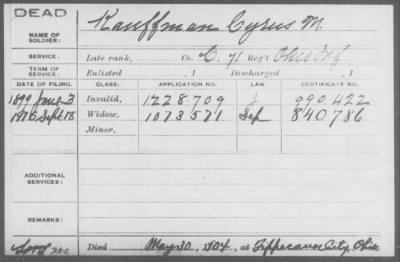 DEAD
NAME OF SOLDIER: Kauffman Cyrus M.
SERVICE: Late rank, Co. C, 71 Reg't Ohio Inf
TERM OF SERVICE: Enlisted , 1 Discharged , 1
DATE OF FILING. CLASS. APPLICATION NO. LAW. CERTIFICATE NO.
1899 June 3 Invalid, 1228.709 990.422
1916 Sept. 18 Widow, 1073571 Sep 840786
Minor,
ADDITIONAL SERVICES:
REMARKS:
Died May 30, 1904, at Tippecanoe City, Ohio